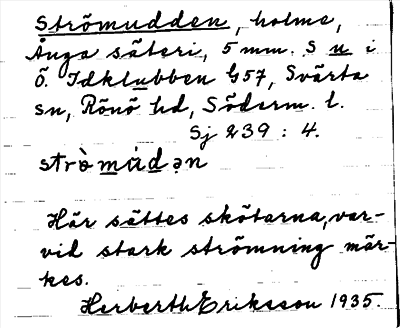 Strömudden, holme,
Ånga säteri, 5 mm. S u i
Ö. Idklubben G57, Svärta
sn, Rönö hd, Söderm. l.
Sj 239 : 4.
strò̀múdən
Här sättes skötarna, var-
vid stark strömning mär-
kes.
Herberth Eriksson 1935.